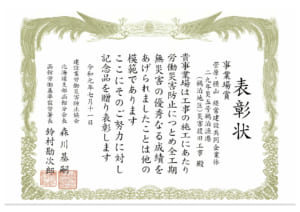 表彰状
事業場賞
菅原・横山 経常建設共同企業体
(鵜泊地区)災害復旧工事 殿
貴事業場は工事の施工にあたり
労働災害防止につとめ全工期
無災害の優秀なる成績を
あげられましたことは他の
模範であります
ここにそのご努力に対し
記念品を贈り表彰します
令和元年七月十一日
建設業労働災害防止協会
北海道支部函館分会長 森川基嗣
函館労働基準監督署長 鈴村勘次郎